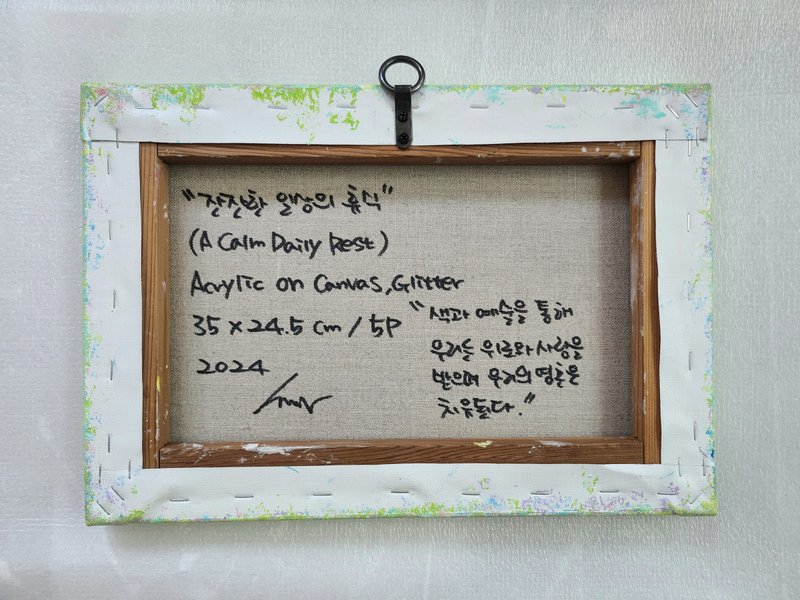 "잔잔한 일상의 휴식"
(A Calm Daily Rest)
Acrylic on Canvas, Glitter
35 x 24.5 cm / 5P
2024
"색과 예술을 통해
우리는 위로와 사랑을
받으며 우리의 영혼은
치유된다."